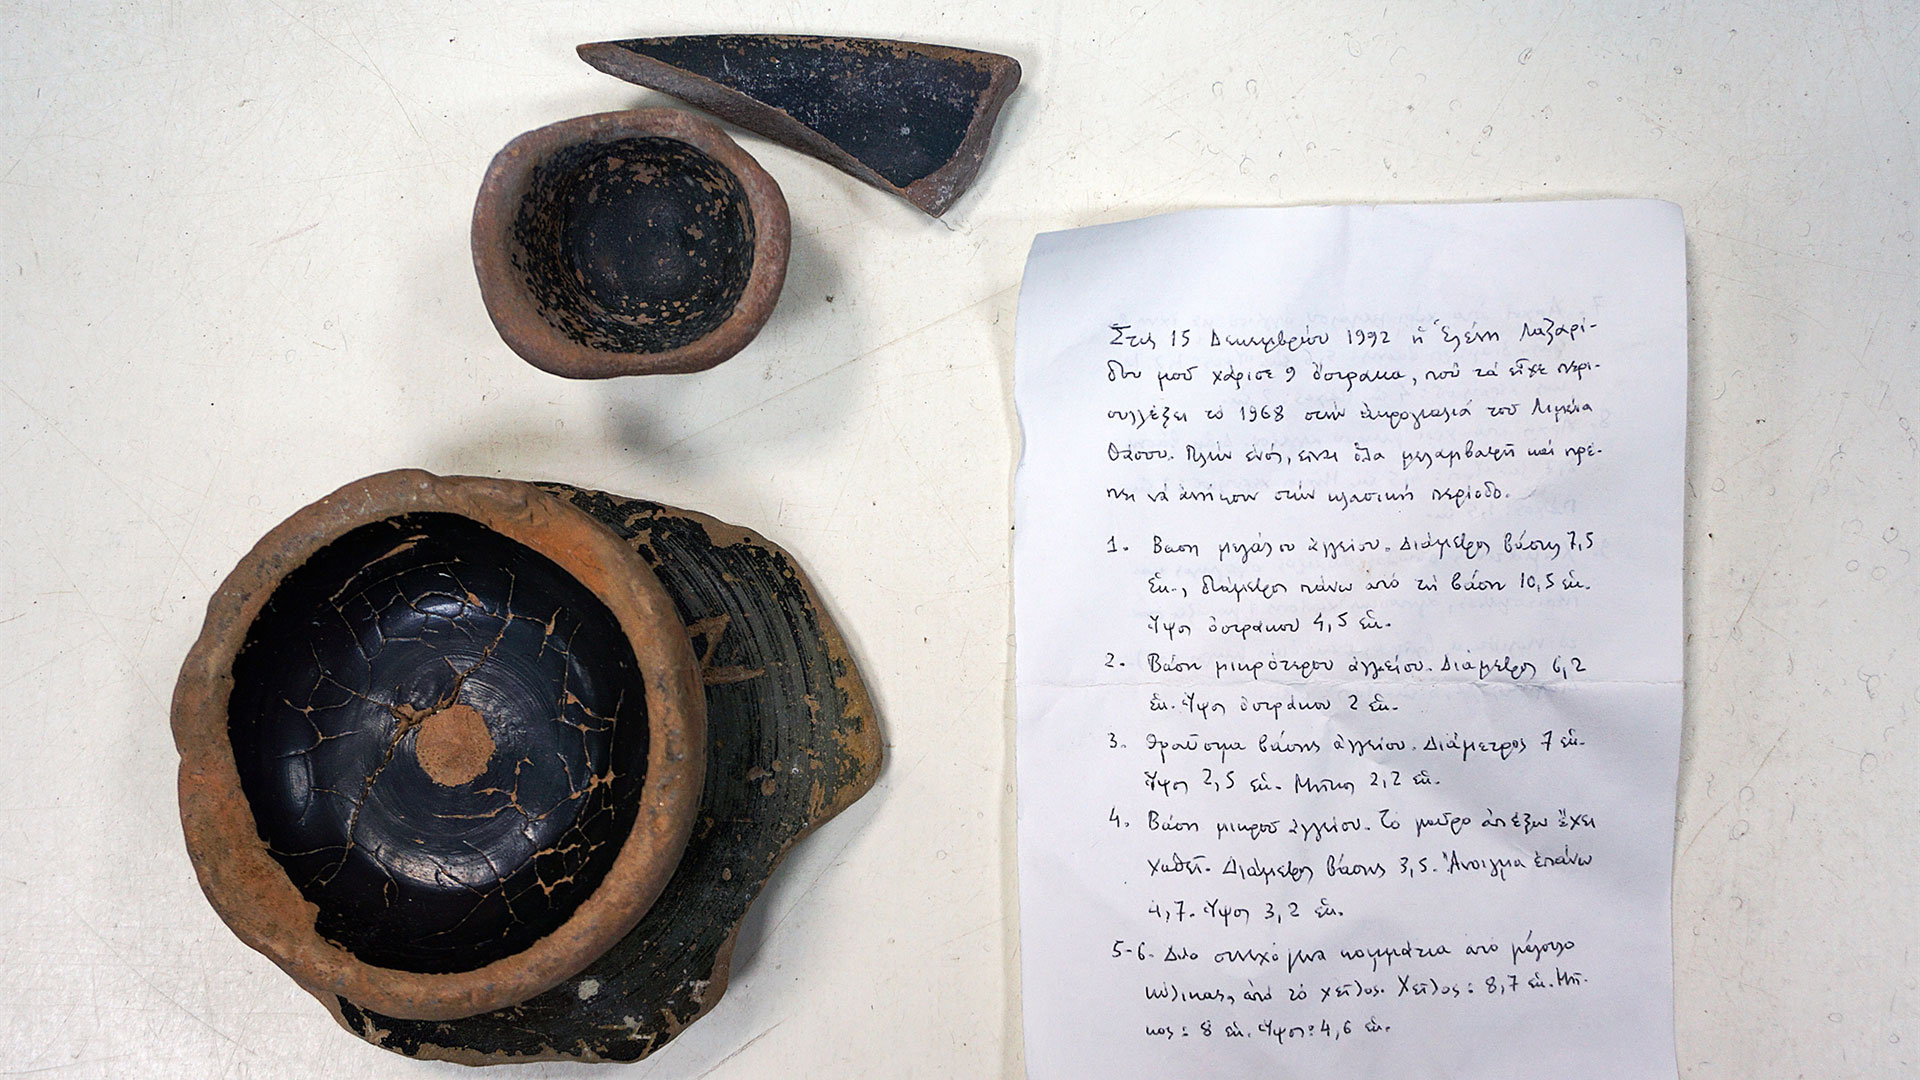 Στις 15 Δεκεμβρίου 1992 ἡ Ἑλένη Λαζαρί-
δου μοῦ χάρισε 9 ὄστρακα, ποὺ τὰ εἶχε περι-
συλλέξει τὸ 1968 στὴν ἀκρογιαλιά τοῦ Λιμένα
Θάσου. Πλὴν ἑνός, εἶναι ὅλα μελαμβαφῆ καὶ πρέ-
πει νὰ ἀνήκουν στὴν κλασικὴ περίοδο.
1. Βάση μεγάλου ἀγγείου. Διάμετρος βάσης 7,5
ἑκ., διάμετρος πάνω ἀπὸ τὴ βάση 10,5 ἑκ.
Ὕψος ὀστράκου 4,5 ἑκ.
2. Βάση μικρότερου ἀγγείου. Διάμετρος 6,2
ἑκ. Ὕψος ὀστράκου 2 ἑκ.
3. Θραῦσμα βάσης ἀγγείου. Διάμετρος 7 ἑκ.
Ὕψος 2,5 ἑκ. Μῆκος 2,2 ἑκ.
4. Βάση μικροῦ ἀγγείου. Τὸ μαῦρο ἀπ' ἔξω ἔχει
χαθεῖ. Διάμετρος βάσης 3,5. Ἄνοιγμα ἐπάνω
4,7. Ὕψος 3,2 ἑκ.
5-6. Δυο συνεχόμενα κομμάτια ἀπὸ μεγάλο
κύλικας, ἀπὸ τὸ χεῖλος. Χεῖλος: 8,7 ἑκ. Μῆ-
κος: 8 ἑκ. Ὕψος: 4,6 ἑκ.